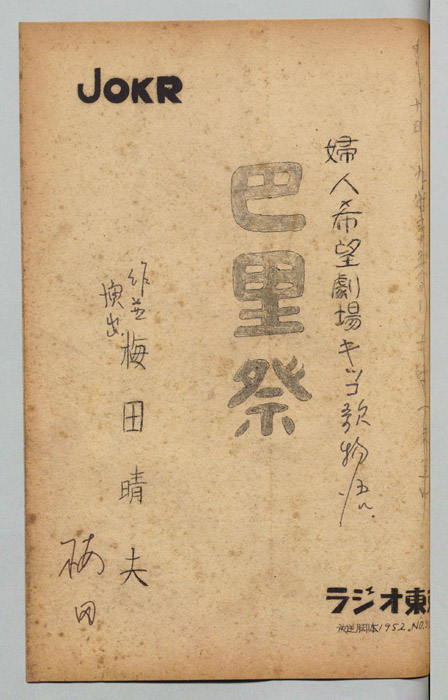 JOKR
婦人希望劇場キッコ歌物語
巴里祭
作並
演出
梅田晴夫
梅田
ラジオ東
放送脚本1952.NO.